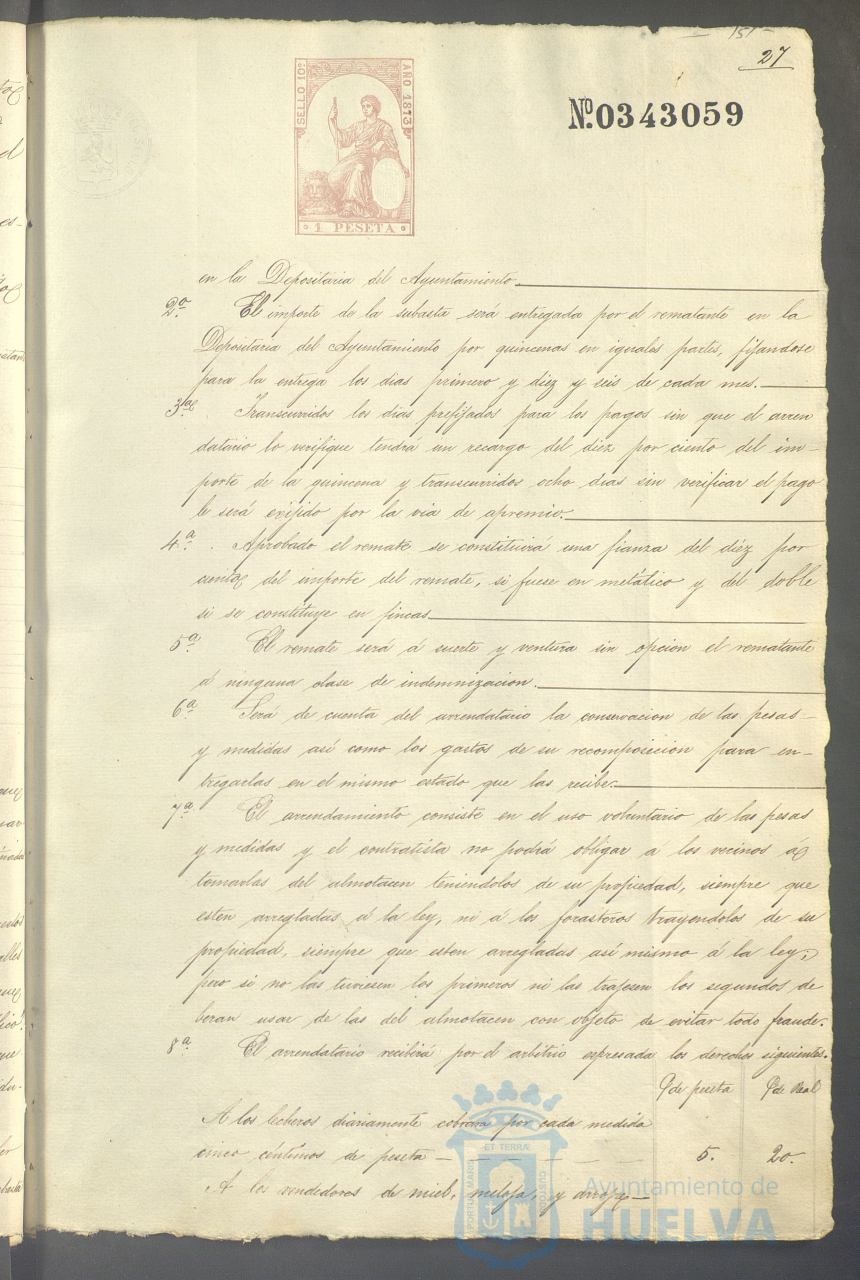 151
27
SELLO 10º
AÑO 1873
1 PESETA
Nº 0343059
en la Depositaria del Ayuntamiento.
2ª. El importe de la subasta será entregada por el rematante en la
Depositaria del Ayuntamiento por quincenas en iguales partes, fijandose
para la entrega los dias primero y diez y seis de cada mes.
3ª. Transcurridos los dias prefijados para los pagos sin que el arren
datario lo verifique tendrá un recargo del diez por ciento del im-
porte de la quincena y transcurridos ocho dias sin verificar el pago
le será exijido por la via de apremio.
4ª. Aprobado el remate se constituirá una fianza del diéz por
ciento del importe del remate, si fuese en metálico y del doble
si se constituye en fincas
5ª. El remate será á suerte y ventura sin opcion el rematante
á ninguna clase de indemnizacion.
6ª Será de cuenta del arrendatario la conservacion de las pesas
y medidas asi como los gastos de su recomposicion para en-
tregarlas en el mismo estado que las recibe.
7ª El arrendamiento consiste en el uso voluntario de las pesas
y medidas y el contratista no podrá obligar á los vecinos á
tomarlas del almotacen teniéndolos de su propiedad, siempre que
esten arregladas á la ley, ni á los forasteros trayendolos de su
propiedad, siempre que esten arregladas asi mismo á la ley;
pero si no las tuviesen los primeros ni las trajesen los segundos de
beran usar de las del almotacen con objeto de evitar todo fraude.
8ª. El arrendatario recibirá por el arbitrio espresada los derechos siguientes.
C. de peseta C. de Real
A los lecheros diariamente cobrará por cada medida
cinco céntimos de peseta — 5. 20.
A los vendedores de miel, meloja, y arrope —
PORTUS MARIS
ET TERRÆ
CUSTODIA
Ayuntamiento de
HUELVA